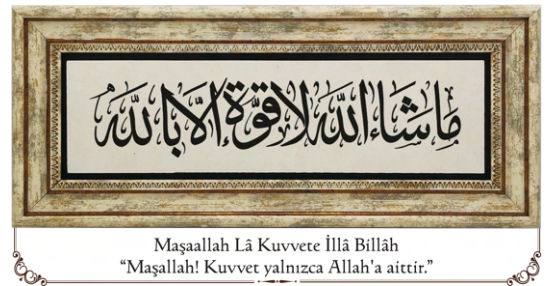 ما شاء الله لا قوة إلا بالله
Maşaallah Lâ Kuvvete İllâ Billâh
“Maşallah! Kuvvet yalnızca Allah'a aittir.”